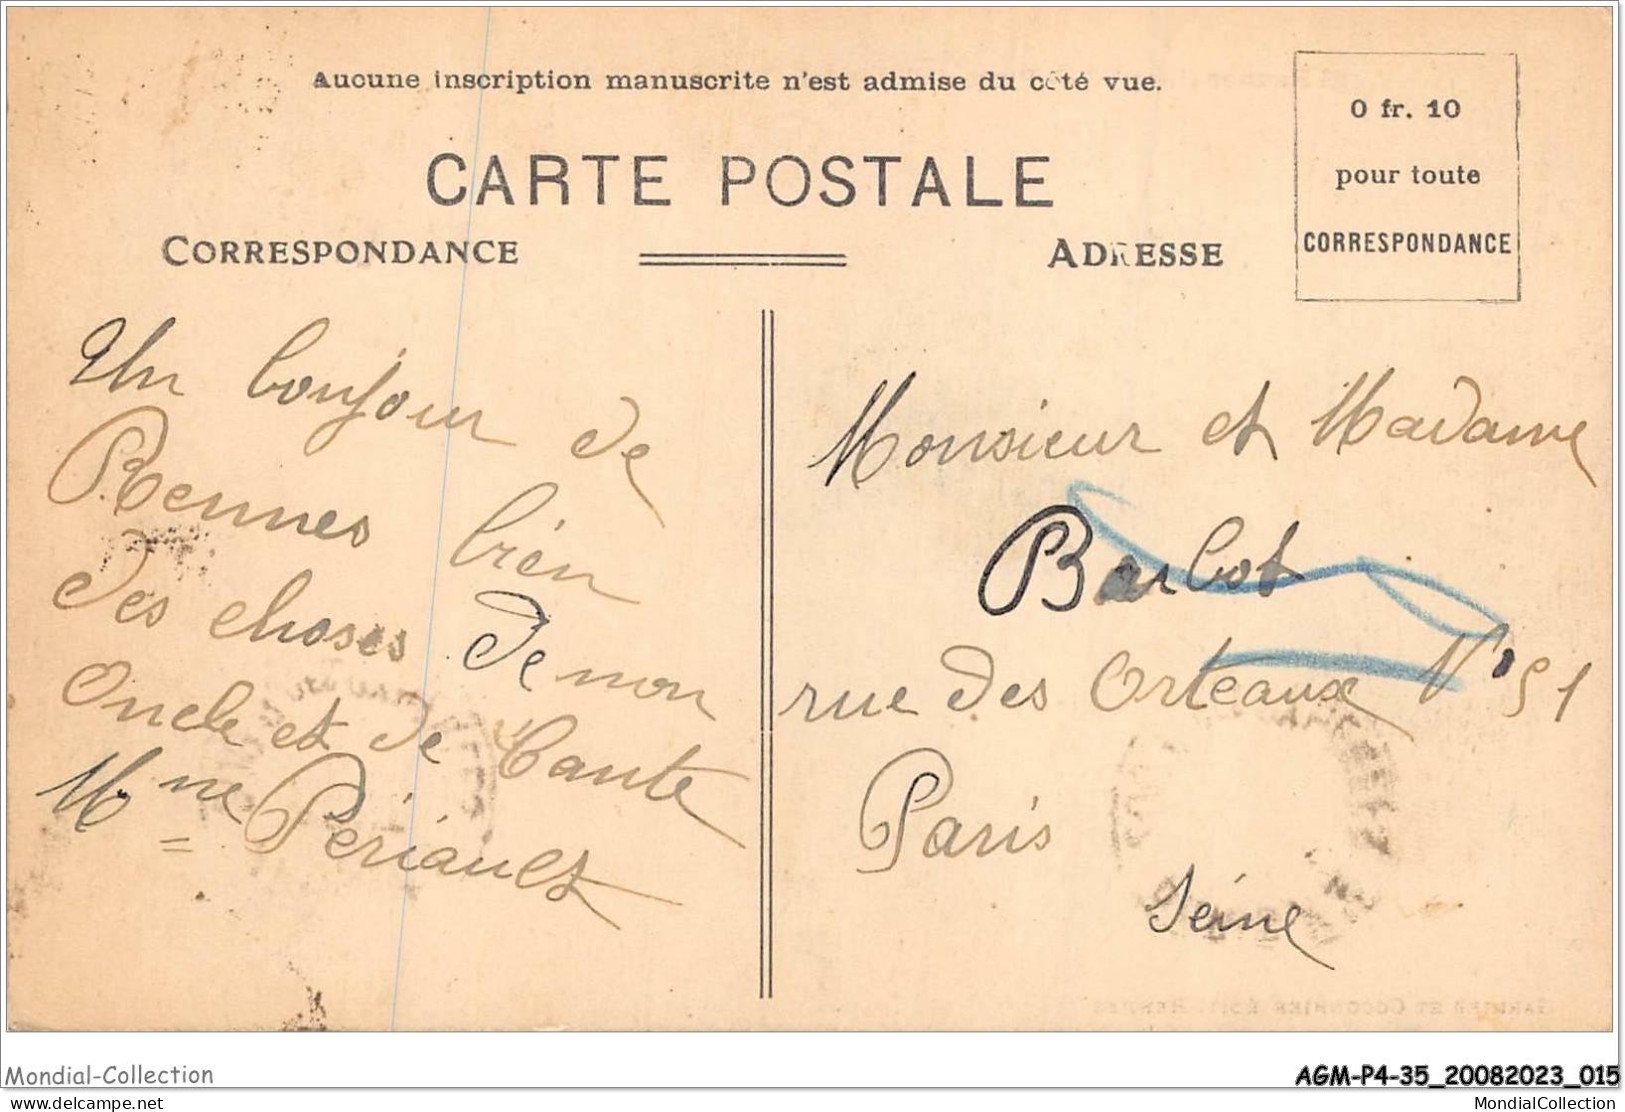 Aucune inscription manuscrite n'est admise du côté vue.
CARTE POSTALE
CORRESPONDANCE
ADRESSE
0 fr. 10
pour toute
CORRESPONDANCE
Un bonjour de
Rennes bien
des choses de mon
Oncle et de Tante
Mme Périault
Monsieur et Madame
Barbot
rue des Orteaux N° 51
Paris
Seine
GARNIER ET COCONNIER ÉDIT. RENNES
Mondial-Collection
AGM-P4-35_20082023_015
www.delcampe.net
MondialCollection